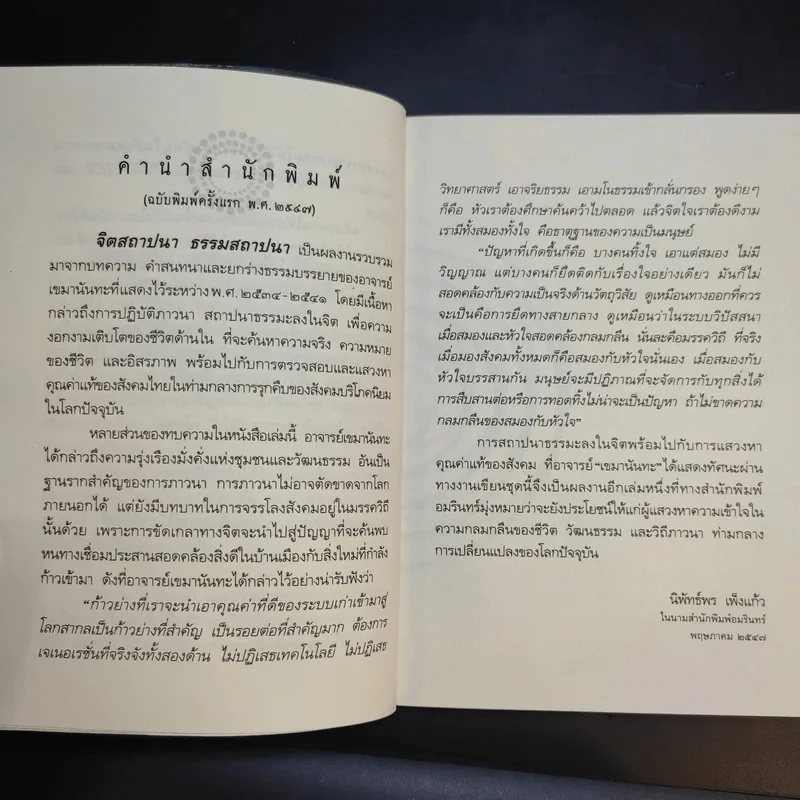 คำนำสำนักพิมพ์
(ฉบับพิมพ์ครั้งแรก พ.ศ. ๒๕๔๗)
จิตสถาปนา ธรรมสถาปนา เป็นผลงานรวบรวม
มาจากบทความ คำสนทนาและยกร่างธรรมบรรยายของอาจารย์
เขมานันทะที่แสดงไว้ระหว่าง พ.ศ. ๒๕๓๔-๒๕๔๑ โดยมีเนื้อหา
กล่าวถึงการปฏิบัติภาวนา สถาปนาธรรมะลงในจิต เพื่อความ
งอกงามเติบโตของชีวิตด้านใน ที่จะค้นหาความจริง ความหมาย
ของชีวิต และอิสรภาพ พร้อมไปกับการตรวจสอบและแสวงหา
คุณค่าแท้ของสังคมไทยในท่ามกลางการรุกคืบของสังคมบริโภคนิยม
ในโลกปัจจุบัน
หลายส่วนของบทความในหนังสือเล่มนี้ อาจารย์เขมานันทะ
ได้กล่าวถึงความรุ่งเรืองมั่งคั่งแห่งชุมชนและวัฒนธรรม อันเป็น
ฐานรากสำคัญของการภาวนา การภาวนาไม่อาจตัดขาดจากโลก
ภายนอกได้ แต่ยังมีบทบาทในการจรรโลงสังคมอยู่ในมรรควิถี
นั้นด้วย เพราะการขัดเกลาทางจิตจะนำไปสู่ปัญญาที่จะค้นพบ
หนทางเชื่อมประสานสอดคล้องสิ่งดีในบ้านเมืองกับสิ่งใหม่ที่กำลัง
ก้าวเข้ามา ดังที่อาจารย์เขมานันทะได้กล่าวไว้อย่างน่ารับฟังว่า
“ก้าวย่างที่เราจะนำเอาคุณค่าที่ดีของระบบเก่าเข้ามาสู่
โลกสากลเป็นก้าวย่างที่สำคัญ เป็นรอยต่อที่สำคัญมาก ต้องการ
เจเนอเรชั่นที่จริงจังทั้งสองด้าน ไม่ปฏิเสธเทคโนโลยี ไม่ปฏิเสธ
วิทยาศาสตร์ เอาจริยธรรม เอามโนธรรมเข้ากลั่นกรอง พูดง่ายๆ
ก็คือ หัวเราต้องศึกษาค้นคว้าไปตลอด แล้วจิตใจเราต้องดีงาม
เรามีทั้งสมองทั้งใจ คือธาตุฐานของความเป็นมนุษย์
“ปัญหาที่เกิดขึ้นก็คือ บางคนทิ้งใจ เอาแต่สมอง ไม่มี
วิญญาณ แต่บางคนก็ยึดติดกับเรื่องใจอย่างเดียว มันก็ไม่
สอดคล้องกับความเป็นจริงด้านวัตถุวิสัย ดูเหมือนทางออกที่ควร
จะเป็นคือการยึดทางสายกลาง ดูเหมือนว่าในระบบวิปัสสนา
เมื่อสมองและหัวใจสอดคล้องกลมกลืน นั่นละคือมรรควิถี ที่จริง
เมื่อมองสังคมทั้งหมดก็คือสมองกับหัวใจนั่นเอง เมื่อสมองกับ
หัวใจบรรสานกัน มนุษย์จะมีปฏิภาณที่จะจัดการกับทุกสิ่งได้
การสืบสานต่อหรือการทอดทิ้งไม่น่าจะเป็นปัญหา ถ้าไม่ขาดความ
กลมกลืนของสมองกับหัวใจ”
การสถาปนาธรรมะลงในจิตพร้อมไปกับการแสวงหา
คุณค่าแท้ของสังคม ที่อาจารย์ “เขมานันทะ” ได้แสดงทัศนะผ่าน
ทางงานเขียนชุดนี้จึงเป็นผลงานอีกเล่มหนึ่งที่ทางสำนักพิมพ์
อมรินทร์มุ่งหมายว่าจะยังประโยชน์ให้แก่ผู้แสวงหาความเข้าใจใน
ความกลมกลืนของชีวิต วัฒนธรรม และวิถีภาวนา ท่ามกลาง
การเปลี่ยนแปลงของโลกปัจจุบัน
นิพัทธ์พร เพ็งแก้ว
ในนามสำนักพิมพ์อมรินทร์
พฤษภาคม ๒๕๔๗